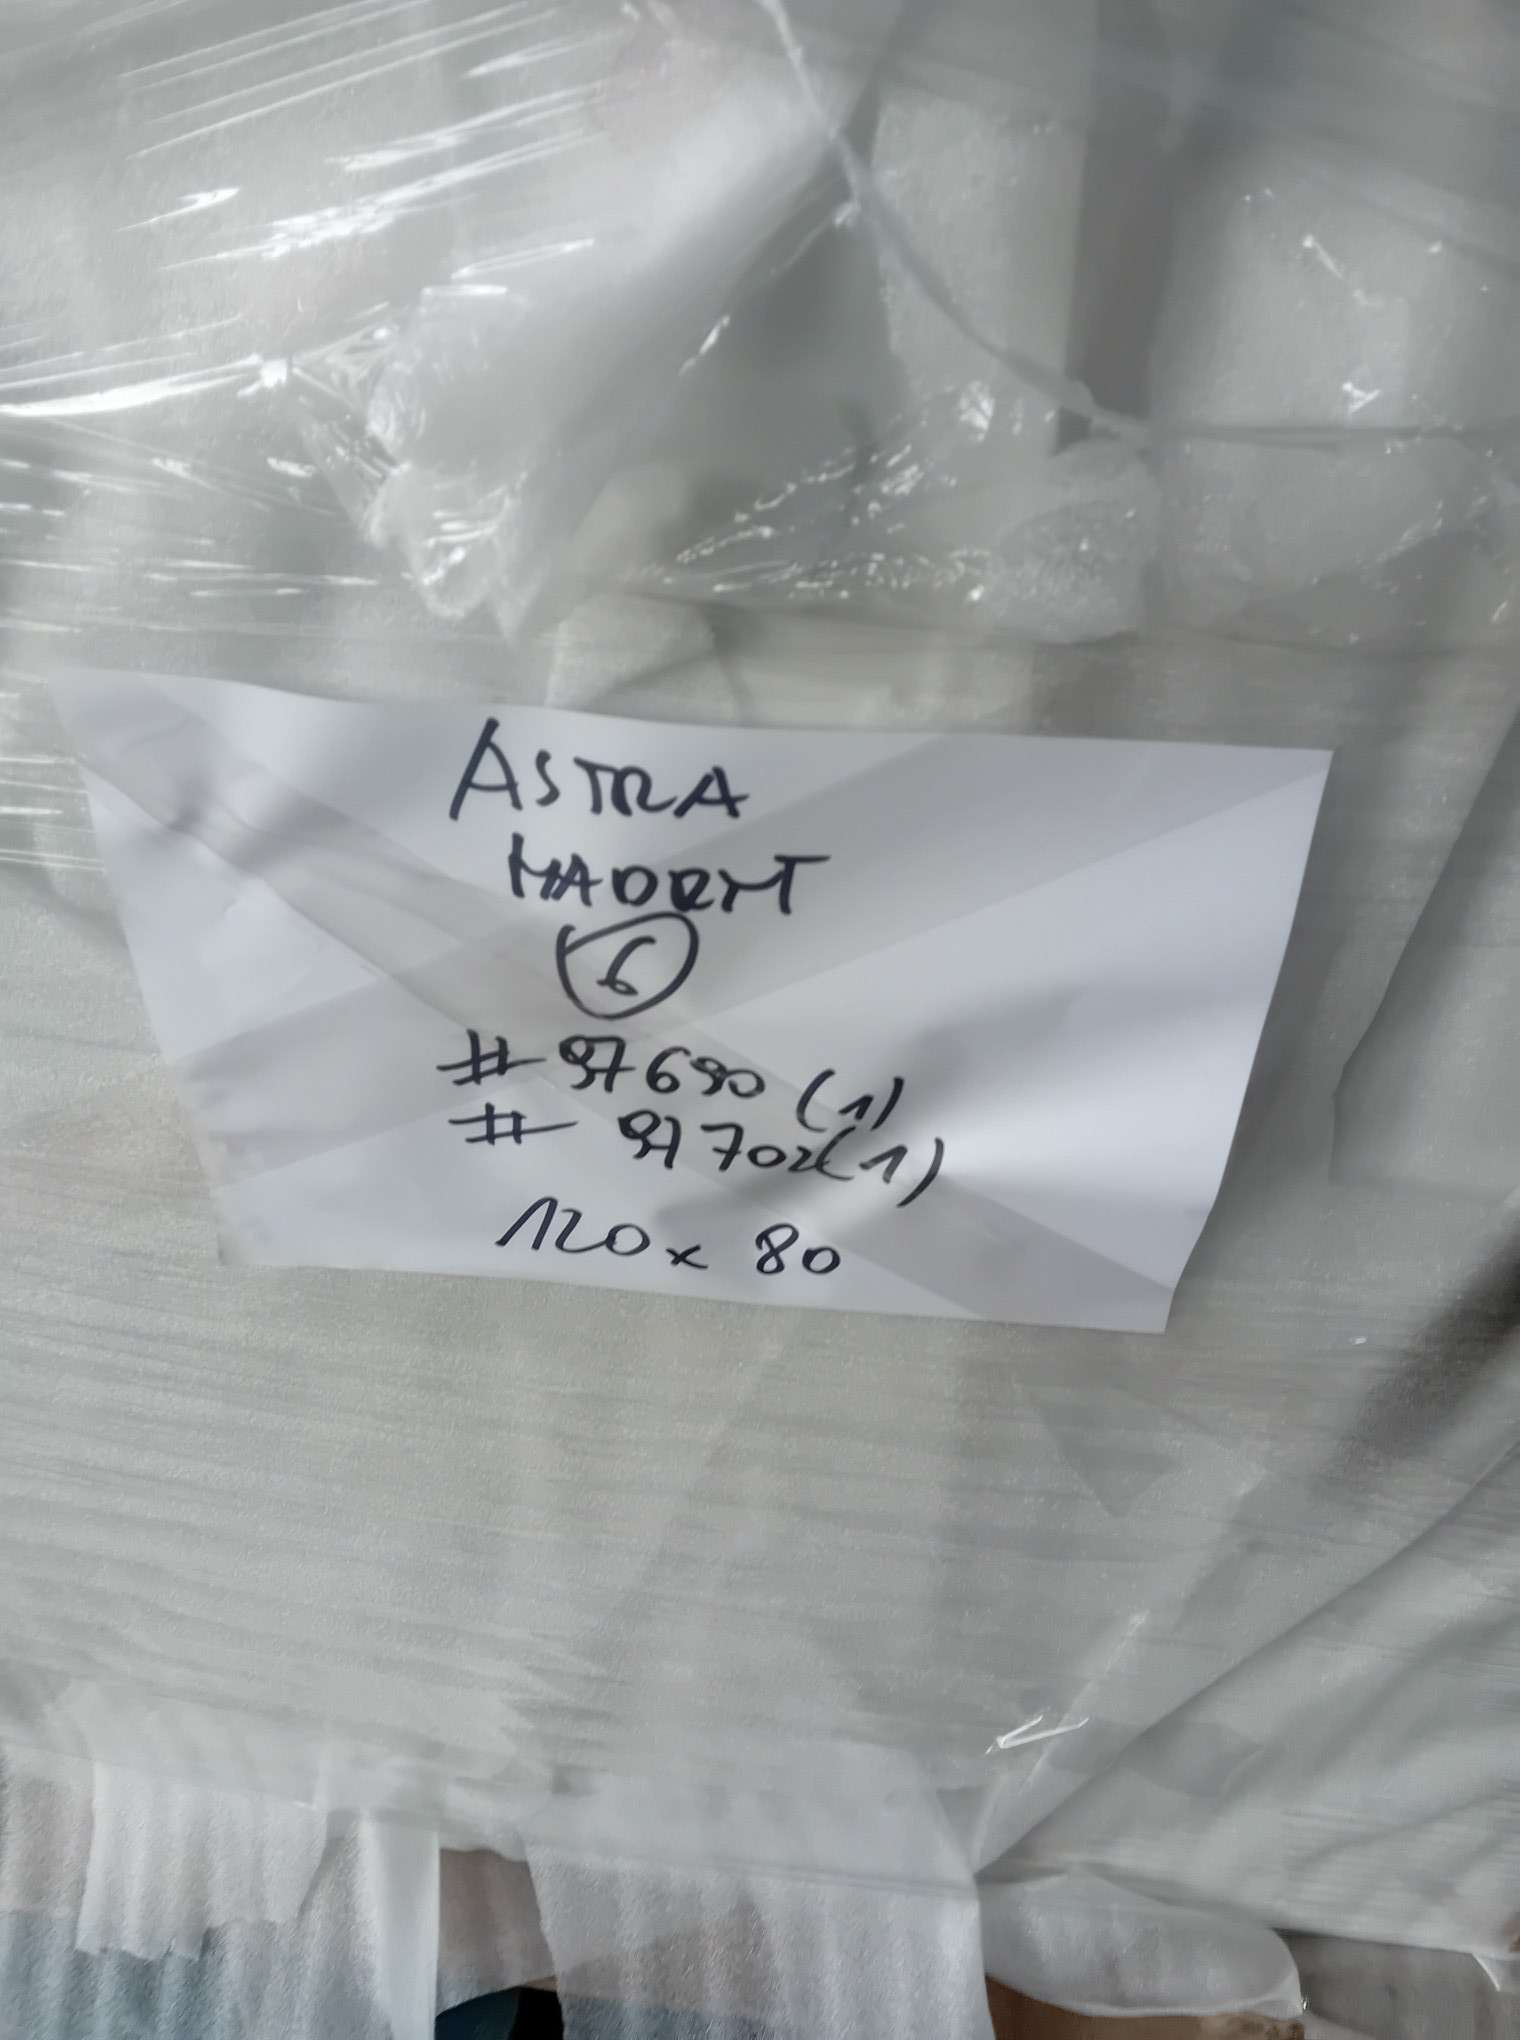 ASTRA
6
# 97690 (1)
# 97702 (1)
120 x 80